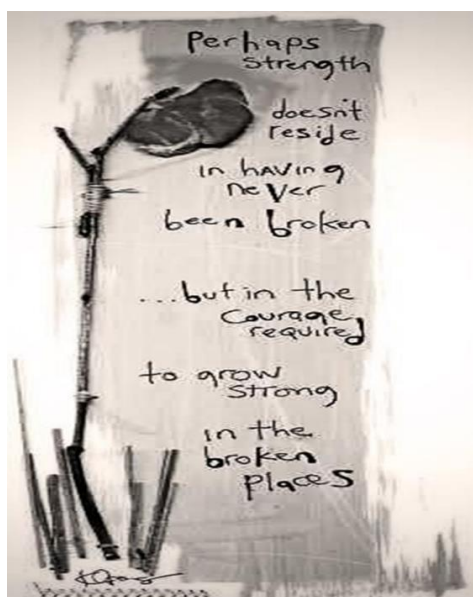 Perhaps
Strength
doesn't
reside
in having
never
been broken
...but in the
Courage
required
to grow
strong
in the
broken
places